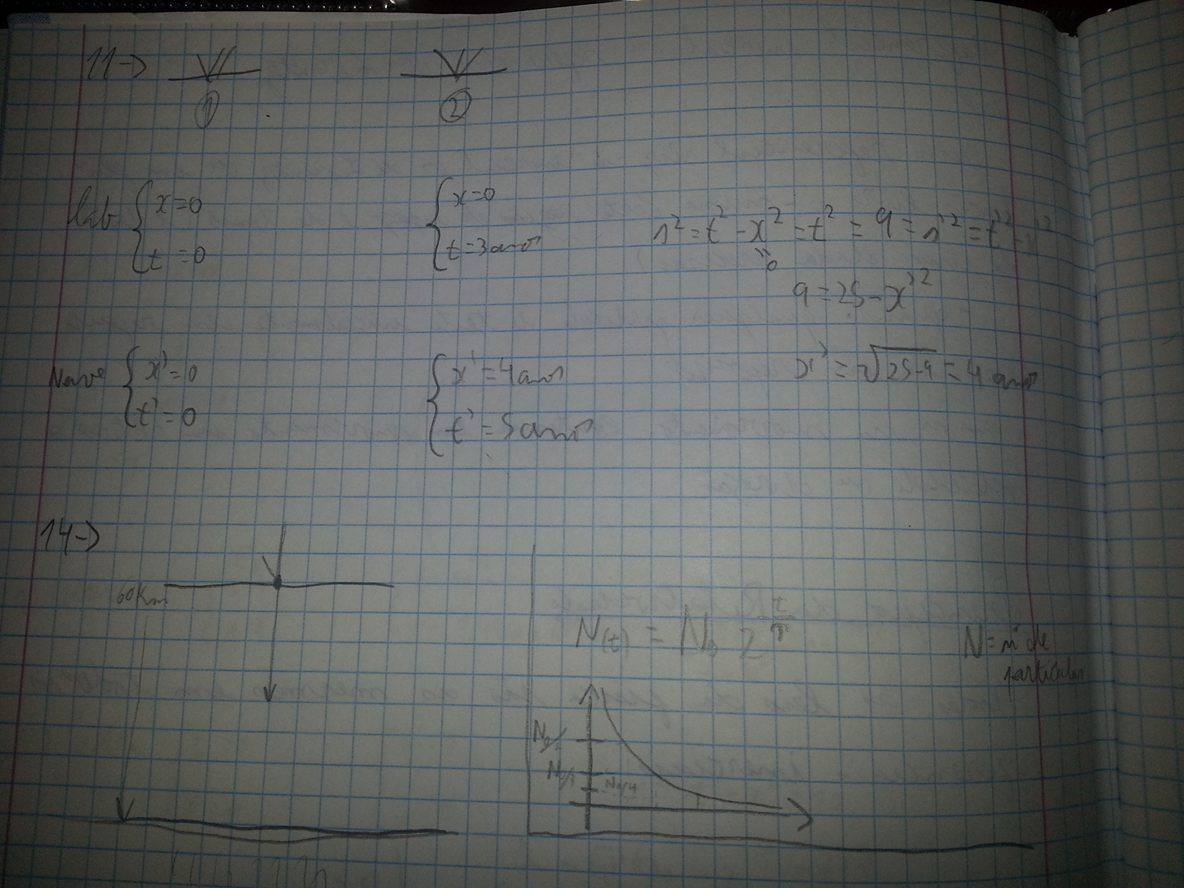 11->
① ②
Lab { x=0 { x=0
t =0 t=3anos
s²=t²-x²=t² = 9 = s'²=t'²-x'²
=0
9=25-x'²
Nave { x'=0 { x'=4anos
t'=0 t'=5anos
x' = √25-9 = 4 anos
14->
60Km
N(t) = N₀ 2^t/T
N= nº de
particulas